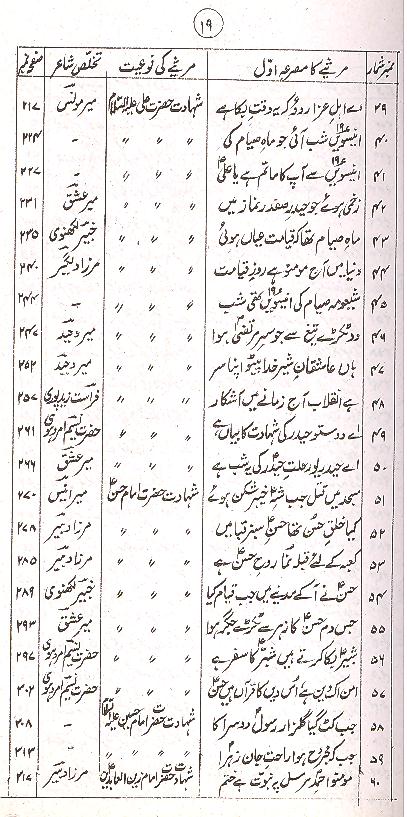 ۱۹
نمبر شمار مرثیے کا مصرعہ اوّل مرثیے کی نوعیت تخلّص شاعر صفحہ نمبر
۳۹ اے اہلِ عزا رو و کہ یہ وقت بکا ہے شہادت حضرت علی علیہ السلام میر مونس ۲۱۷
۴۰ انیسویں شب آئی جو ماہِ صیام کی 〃 〃 〃 - ۲۲۴
۴۱ انیسویں سے آپ کا ماتم ہے یا علیؑ 〃 〃 〃 - ۲۲۷
۴۲ زخمی ہوئے جو حیدر صفدر نماز میں 〃 〃 〃 میر عشق ۲۳۱
۴۳ ماہِ صیام تھا کہ قیامت عیاں ہوئی 〃 〃 〃 خبیر لکھنوی ۲۳۵
۴۴ دنیا میں آج مومنو ہے روزِ قیامت 〃 〃 〃 مرزا دبیر ۲۴۰
۴۵ شیعو مہ صیام کی انیسویں تھی شب 〃 〃 〃 - ۲۴۴
۴۶ دو ٹکڑے تیغ سے جو سر مرتضیٰ ہوا 〃 〃 〃 میر وحید ۲۴۷
۴۷ ہاں عاشقانِ شیر خدا پیٹو اپنا سر 〃 〃 〃 میر وحید ۲۵۲
۴۸ ہے انقلاب آج زمانے میں آشکار 〃 〃 〃 فراست زیدپوری ۲۵۷
۴۹ اے دوستو حیدر کی شہادت کا بیاں ہے 〃 〃 〃 حضرت نسیم امروہوی ۲۶۱
۵۰ اے حیدریو رحلتِ حیدر کی یہ شب ہے 〃 〃 〃 میر عشق ۲۶۶
۵۱ مسجد میں قتل جب شہِ خیبر شکن ہوئے شہادت حضرت امام حسنؑ میر انیس ۲۷۰
۵۲ کیا خلقِ حسن تھا حسنِ سبز قبا میں 〃 〃 〃 مرزا دبیر ۲۷۸
۵۳ کعبہ کے لئے قبلہ نما روح حسن ہے 〃 〃 〃 مرزا دبیر ۲۸۵
۵۴ حسنؑ نے آ کے مدینے میں جب قیام کیا 〃 〃 〃 خبیر لکھنوی ۲۸۹
۵۵ جس دم حسنؑ کا زہر سے ٹکڑے جگر ہوا 〃 〃 〃 میر عشق ۲۹۳
۵۶ شبیرؑ بکا کرتے ہیں شبرؑ کا سفر ہے 〃 〃 〃 حضرت نسیم امروہوی ۲۹۷
۵۷ امن اک دین ہے اس دیں کا قرآں ہیں حسنؑ 〃 〃 〃 حضرت نسیم امروہوی ۳۰۲
۵۸ جب کٹ گیا گلزار رسولؐ دوسرا کا شہادت حضرت امام حسین علیہ السلام - ۳۰۸
۵۹ جب کہ مجروح ہوا راحت جان زہراؑ 〃 〃 〃 - ۳۱۳
۶۰ مومنو احمد مرسل پر نبوت ہے ختم شہادت حضرت امام زین العابدینؑ مرزا دبیر ۳۱۷